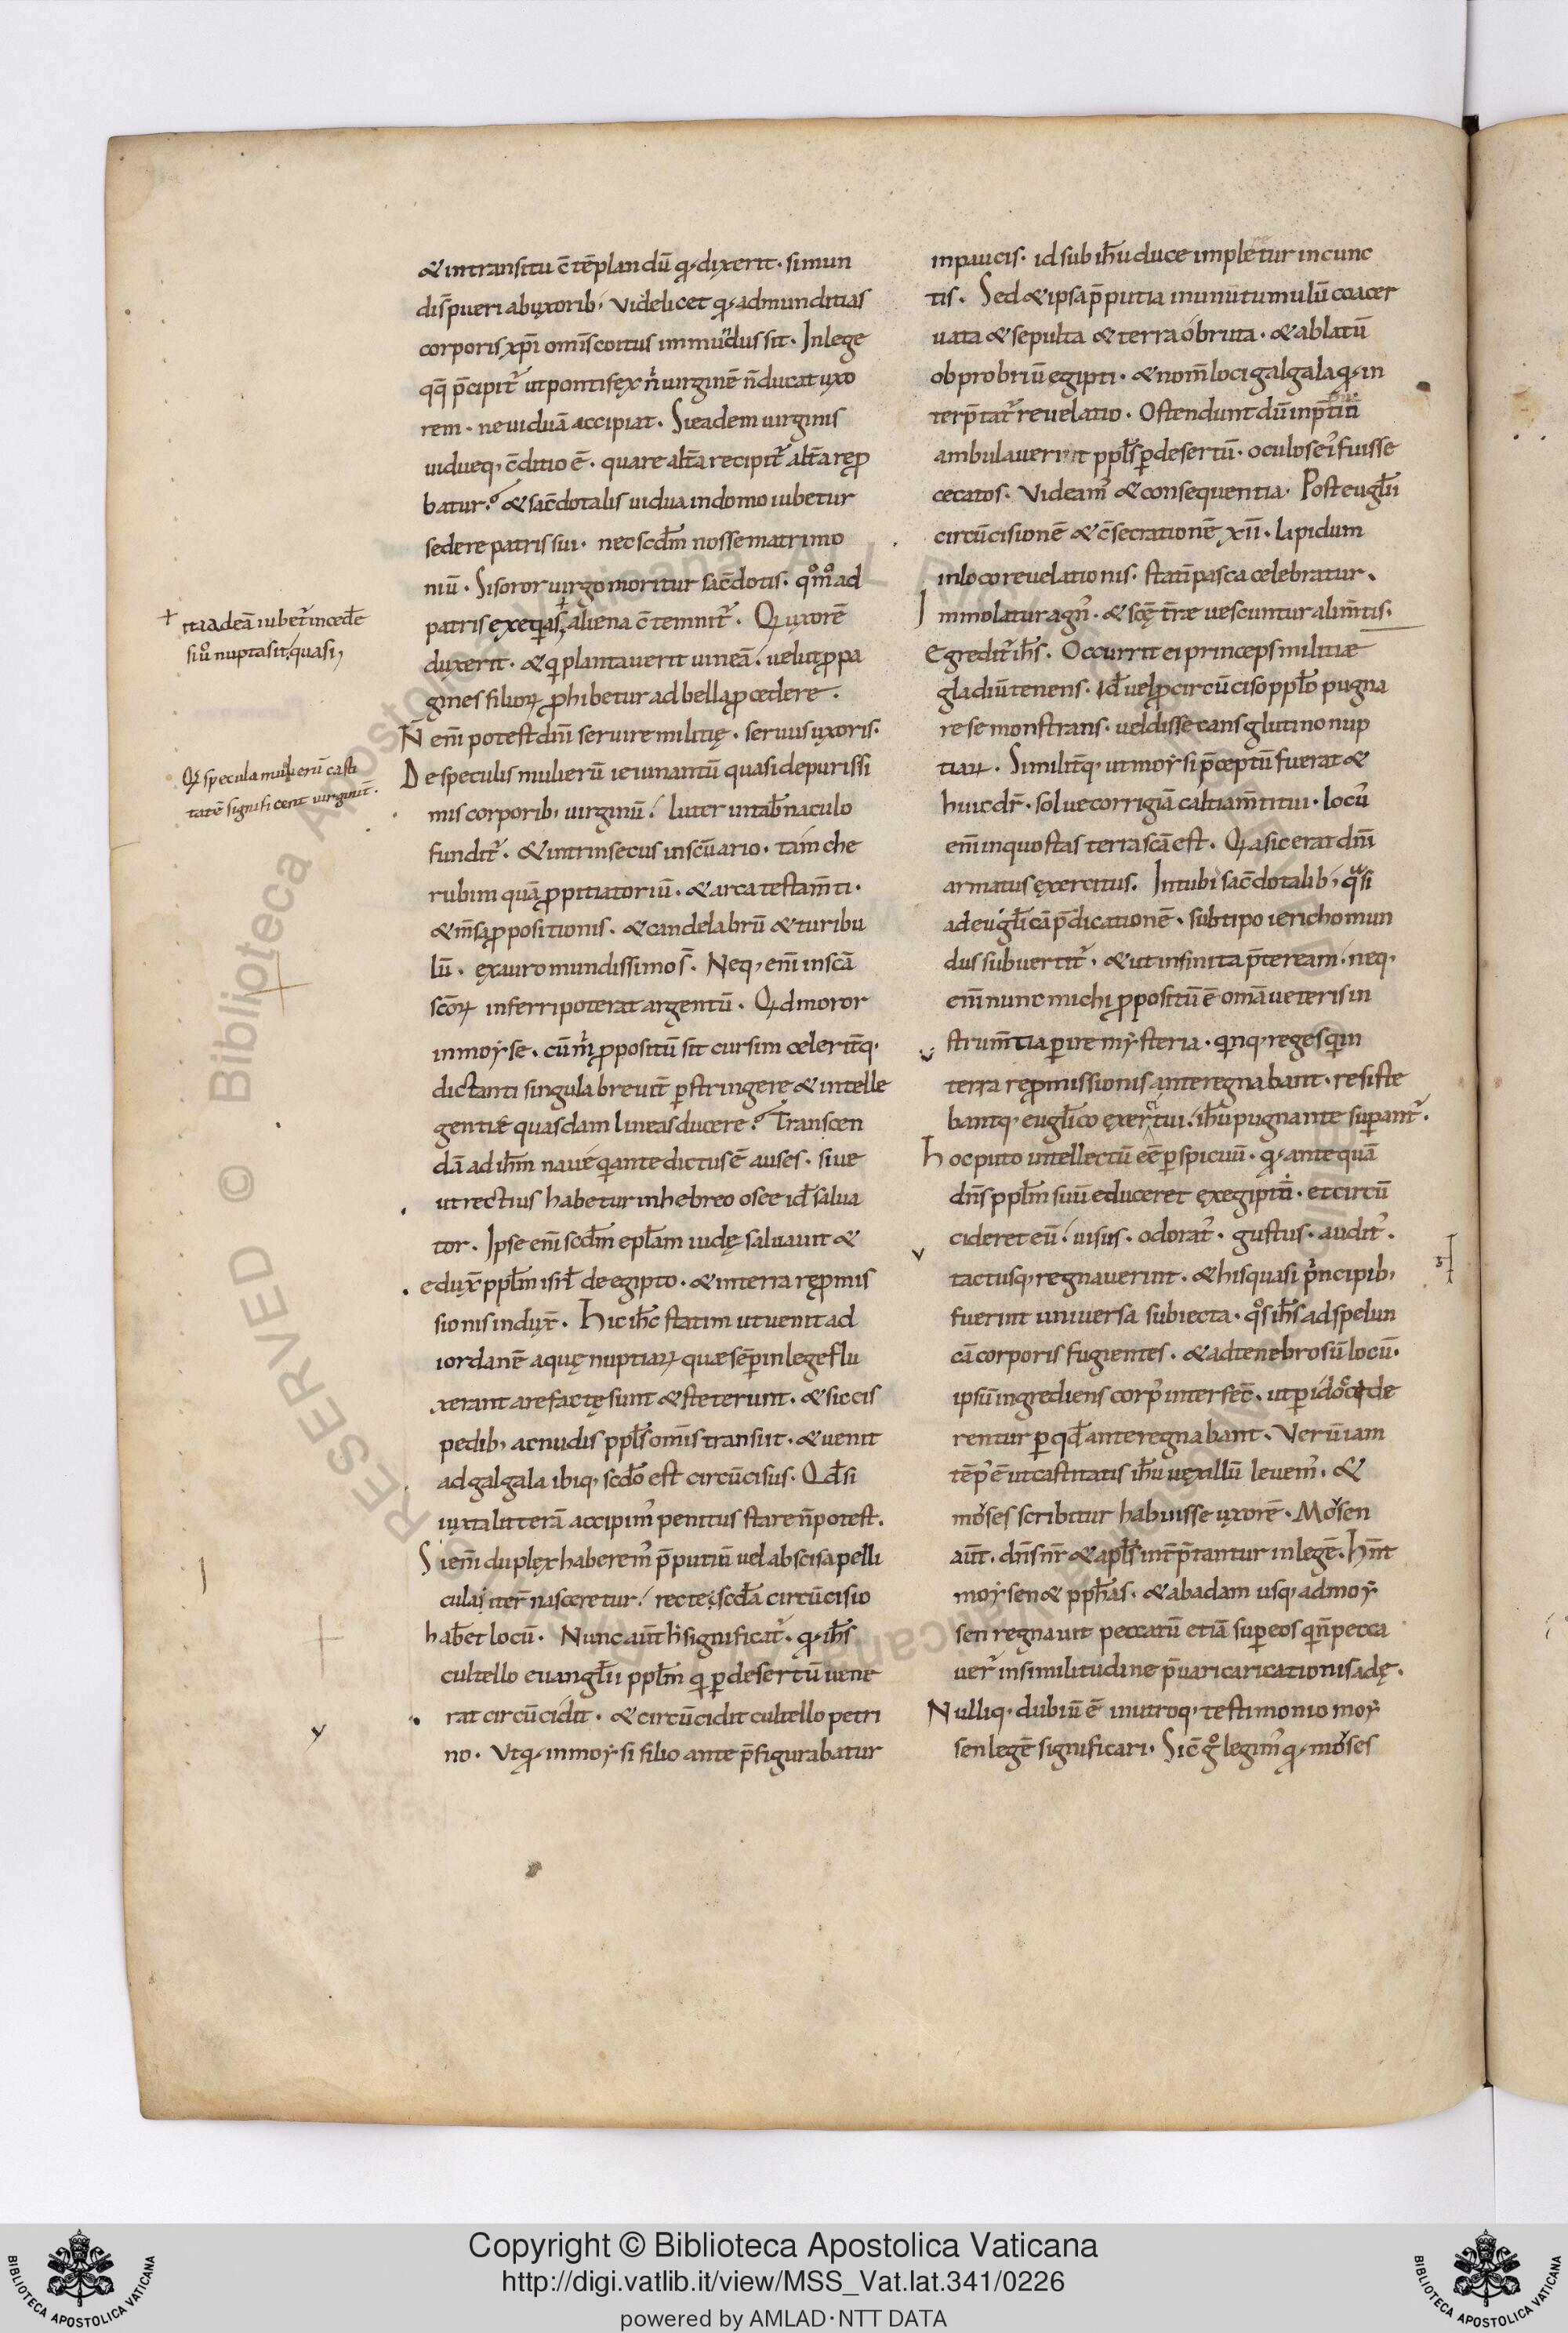 & intransitu c̄tēplandū q̨ dixerit· simun
dis p̄ueri abuxorib; videlicet q̨ admunditias
corporis xp̄i om̄is coitus immūdus sit· Inlege
qq̨ p̄cipit̄ utpontifex ñ uirginē n̄ducat uxo
rem· neuiduā accipiat· Sieadem uirginis
uidueq; c̄ditio ē· quare alt̄a recipit̄ alt̄a rep̱
batur? & sac̄dotalis uidua indomo iubetur
sedere patris sui· nec scd̄m nosse matrimo
niū· Sisoror uirgo moritur sac̄dotis· qͦmͦ ad
patris exeq̨as, aliena c̄temnit̄· Qꝛ uxorē
duxerit· & q̨ plantauerit uineā· uelut p̱pa
gines filioꝝ p̱hibetur ad bella p̱cedere·
N̄ eni potest dn̄i seruire militię· seruus uxoris·
De speculis mulierū ieiunantū quasi depurissi
mis corporib; uirginū· luter intab̄naculo
fundit̄· & intrinsecus insc̄uario· tam che
rubim quā p̱pitiatoriū· & arca testam̄ti·
& m̄sa p̱positionis· & candelabrū & turibu
lū· ex auro mundissimo s̄· Neq; eni insc̄a
sc̄oꝝ inferri poterat argentū· Qꝛd moror
inmoyse· cūm̄ p̱positū sit cursim celerit̄q;
dictanti singula breuit̄ ꝑstringere & intelle
gentiæ quasdam lineas ducere? Transcen
dā ad ih̄m naue q̨ ante dictus ē auses· siue
ut rectius habetur inhebreo osee id̄ salua
tor· Ipse eni scd̄m epl̄am iudę saluauit &
edux̄ ppl̄m isrl̄ de egipto· & interra rep̱mis
sionis indux̄· Hic ih̄c statim ut uenit ad
iordanē aquę nuptiaꝝ quæ sēꝑ inlege flu
xerant arefactę sunt & steterunt· & siccis
pedib; ac nudis ppl̄s om̄is transiit· & uenit
ad galgala ibiq; scd̄o est circūcisus· Qd̄ si
iuxta litterā accipim̾ penitus stare n̄ potest·
Si eni duplex haberem̾ p̄putiū uel abscisa pelli
cula iter̄ nasceretur· recte scd̄a circūcisio
hab̄et locū· Nunc aūt h significat̄· q̨ ih̄s
cultello euangl̄ii ppl̄m q̨ ꝑ desertū uene
rat circūcidit· & circūcidit cultello petri
no· Vt q̨ inmoysi filio ante p̄figurabatur
+ ita ad eā iubet̄ inced̄e
si ů nupta sit, quasi,
Qꝛ specula mulierū casti
tatē significent uirginū·
inpaucis· id sub ih̄u duce impletur incunc
tis· Sed & ipsa p̄putia inunū tumulū coacer
uata & sepulta & terra obruta· & ablatū
obprobriū egipti· & nom̄ loci galgala q̨ in
terp̄tat̄ reuelatio· Ostendunt dū inp̄tiū
ambulauerint ppl̄s ꝑ desertū· oculos ei fuisse
cecatos· Videam̾ & consequentia· Post eugl̄ii
circūcisionē & c̄secrationē xii· lapidum
inloco reuelationis· stati pasca celebratur·
Immolatur agn̾· & sc̄ę t̄ræ uescuntur alim̄tis·
Egredit̄ ih̄s· Occurrit ei princeps militiæ
gladiū tenens· id̄ uel p̱ circūciso ppl̄o pugna
re se monstrans· uel dissecans glutino nup
tiaꝝ· Similit̄q; ut moysi p̄ceptū fuerat &
huic dr̄· solue corrigiā caltiam̄ti tui· locus̾
eni inquo stas terra sc̄a est· Qꝛ asic erat dn̄i
armatus exercitus· Intubi sac̄dotalib; qͣsi
ad eugl̄icā p̄dicationē· sub tipo iericho mun
dus subuertit̄· & ut infinita p̄teream· neq;
eni nunc michi p̱positū ē omā ueteris in
strum̄ti aperire mysteria· q̨nq; reges q̨ in
terra rep̱missionis ante regnabant· resiste
bantq; eugl̄ico exercitui· ih̄u pugnante suꝑant̄·
Hoc puto intellectū ēē ꝑspicuū· q̨ antequā
dn̄s ppl̄m suū educeret ex egipto· et circū
cideret eū· uisus· odorat̾· gustus· audit̾·
tactusq; regnauerint· & his quasi pͥncipib;
fuerint uniuersa subiecta· qͦs ih̄s ad spelun
cā corporis fugientes· & ad tenebrosū locū·
ipsū ingrediens corp̾ interfec̄· ut ꝑ id occide
rentur ꝑ qd̄ ante regnabant· Verū iam
tēp̾ ē ut castitatis ih̄u uexillū leuem̾· &
moses scribitur habuisse uxorē· Mosen
aūt· dn̄s nr̄ & apl̄s int̄p̄tantur in legē· Hn̄t
moysen & pph̄as· & ab adam usq; ad moy
sen regnauit peccatū etiā suꝑ eos q̨ n̄ pecca
uer̄ in similitudine p̄uaricaricationis adę·
Nulliq; dubiū ē inutroq; testimonio moy
sen legē significari· Sic̄ gͦ legim̾ q̨ moses
Copyright © Biblioteca Apostolica Vaticana
http://digi.vatlib.it/view/MSS_Vat.lat.341/0226
powered by AMLAD·NTT DATA
BIBLIOTECA APOSTOLICA VATICANA
BIBLIOTECA APOSTOLICA VATICANA